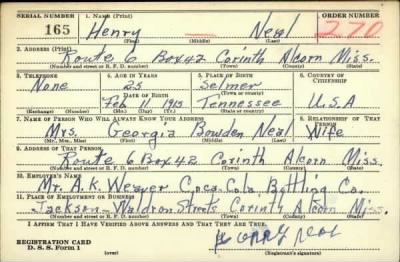 SERIAL NUMBER 1. NAME (Print) ORDER NUMBER
165 Henry — Neal 270
(First) (Middle) (Last)
2. ADDRESS (Print)
Route 6 Box 42 Corinth Alcorn Miss.
(Number and street or R. F. D. number) (Town) (County) (State)
3. TELEPHONE 4. AGE IN YEARS 5. PLACE OF BIRTH 6. COUNTRY OF CITIZENSHIP
None 25 Selmer
DATE OF BIRTH (Town or county)
Feb 11 1915 Tennessee U.S.A
(Exchange) (Number) (Mo.) (Day) (Yr.) (State or country)
7. NAME OF PERSON WHO WILL ALWAYS KNOW YOUR ADDRESS 8. RELATIONSHIP OF THAT PERSON
Mrs. Georgia Bowden Neal Wife
(Mr., Mrs., Miss) (First) (Middle) (Last)
9. ADDRESS OF THAT PERSON
Route 6 Box 42 Corinth Alcorn Miss.
(Number and street or R. F. D. number) (Town) (County) (State)
10. EMPLOYER'S NAME
Mr. A.K. Weaver Coca-Cola Bottling Co.
11. PLACE OF EMPLOYMENT OR BUSINESS
Jackson-Waldron Streets Corinth Alcorn Miss.
(Number and street or R. F. D. number) (Town) (County) (State)
I AFFIRM THAT I HAVE VERIFIED ABOVE ANSWERS AND THAT THEY ARE TRUE.
Henry Neal
REGISTRATION CARD
D. S. S. Form 1 (over) (Registrant's signature)